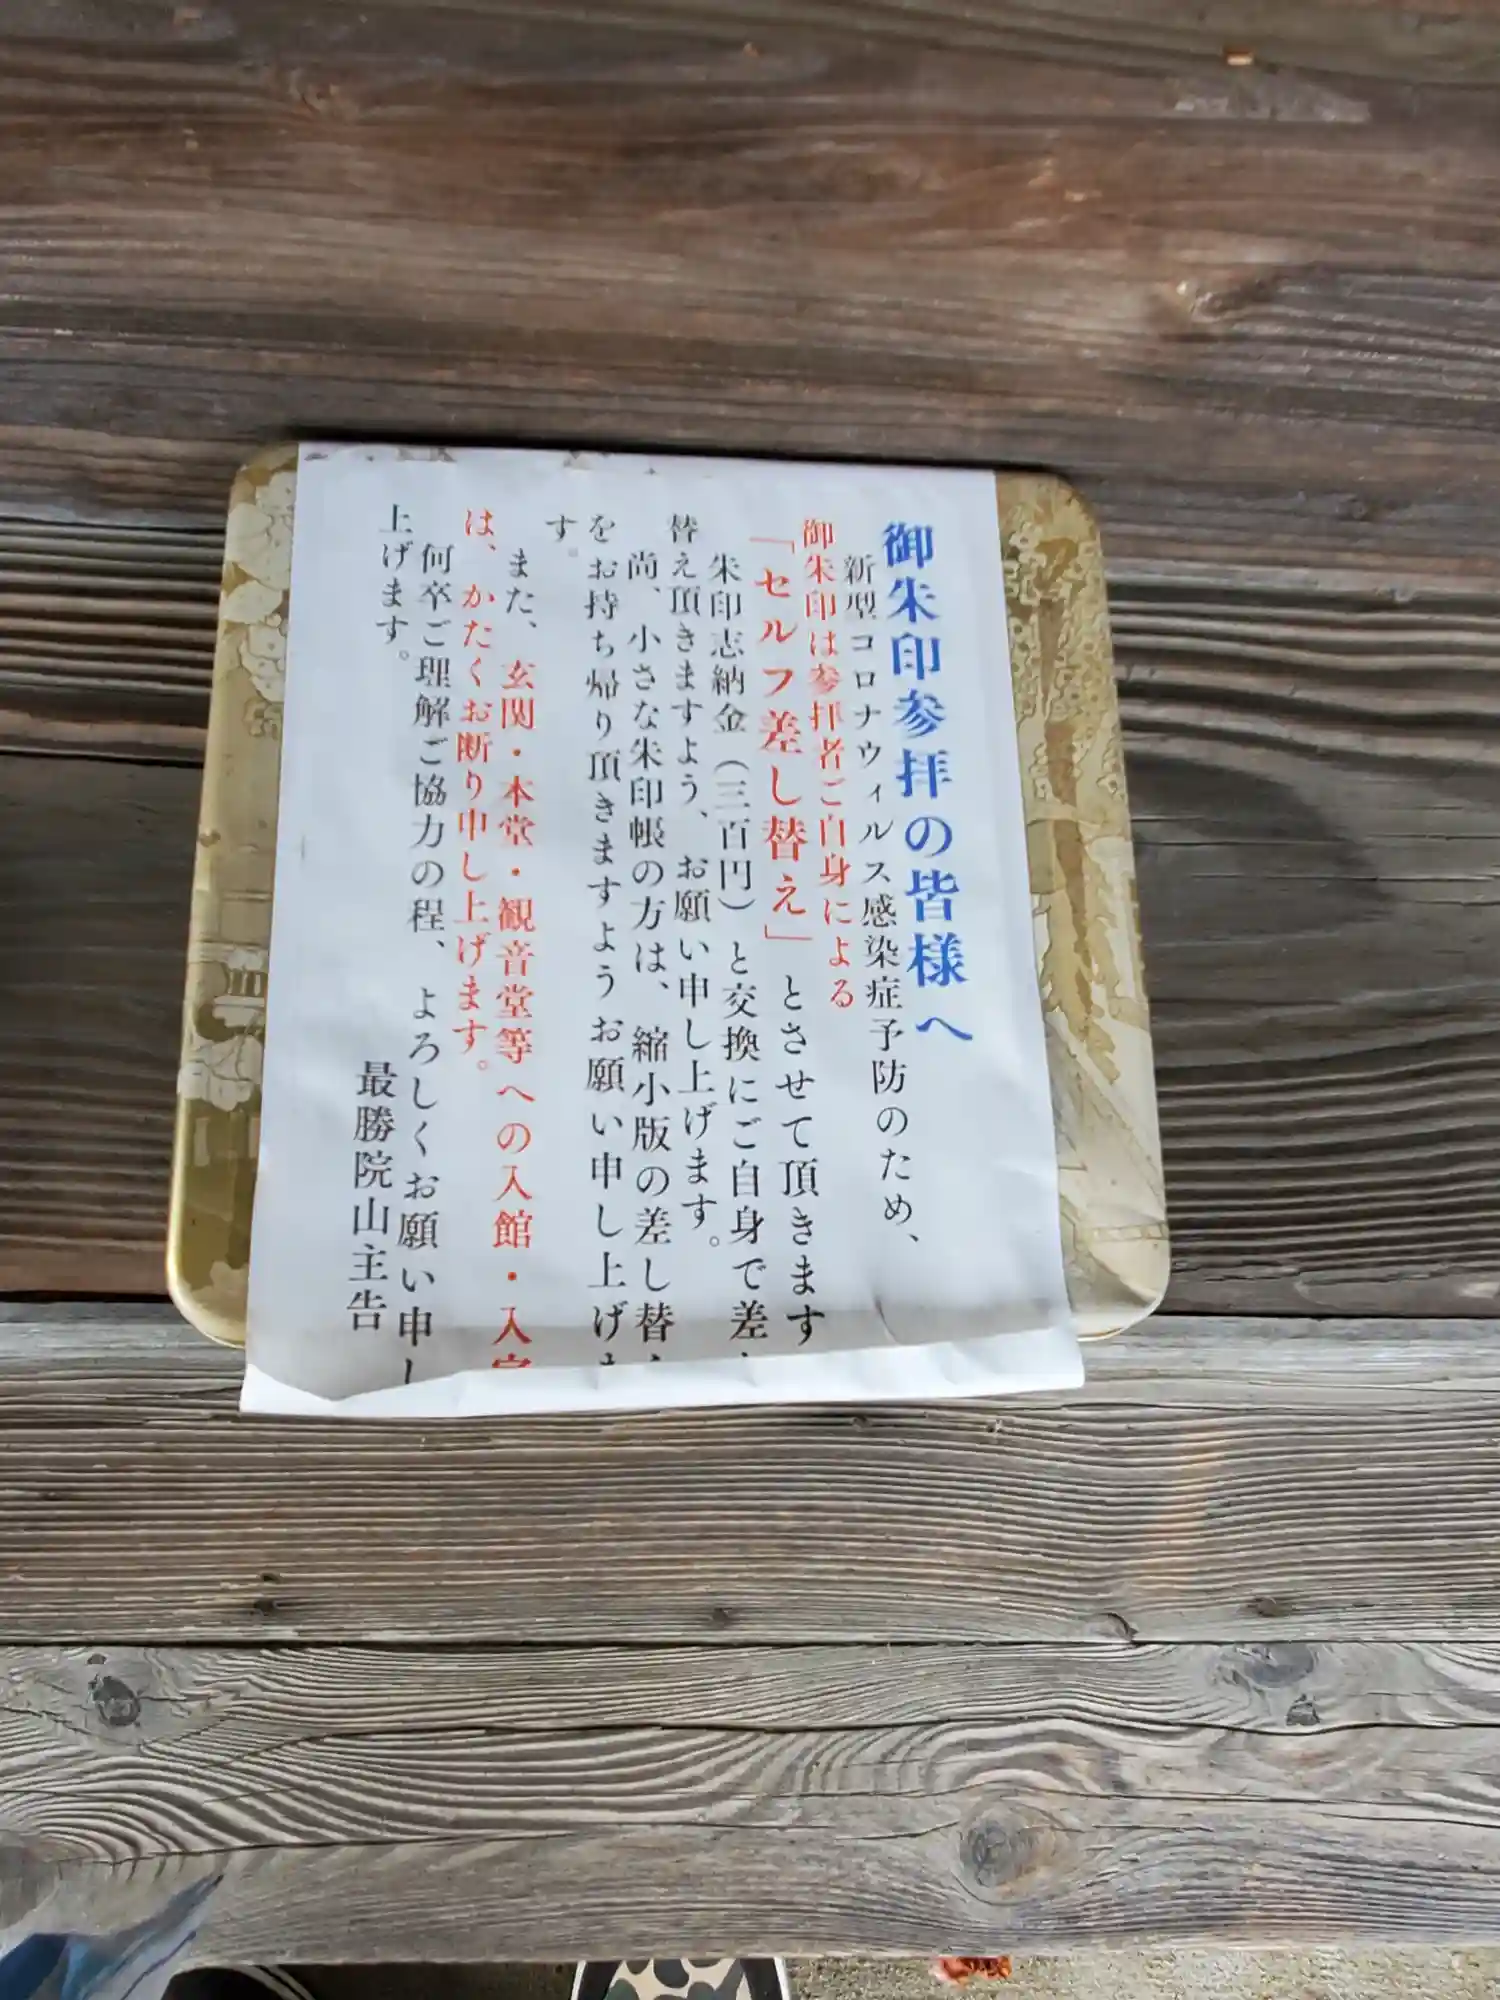 御朱印参拝の皆様へ
新型コロナウィルス感染症予防のため、
御朱印は参拝者ご自身による
「セルフ差し替え」とさせて頂きます
朱印志納金（三百円）と交換にご自身で差し
替え頂きますよう、お願い申し上げます。
尚、小さな朱印帳の方は、縮小版の差し替え
をお持ち帰り頂きますようお願い申し上げま
す。
また、玄関・本堂・観音堂等への入館・入室
は、かたくお断り申し上げます。
何卒ご理解ご協力の程、よろしくお願い申し
上げます。
最勝院山主告